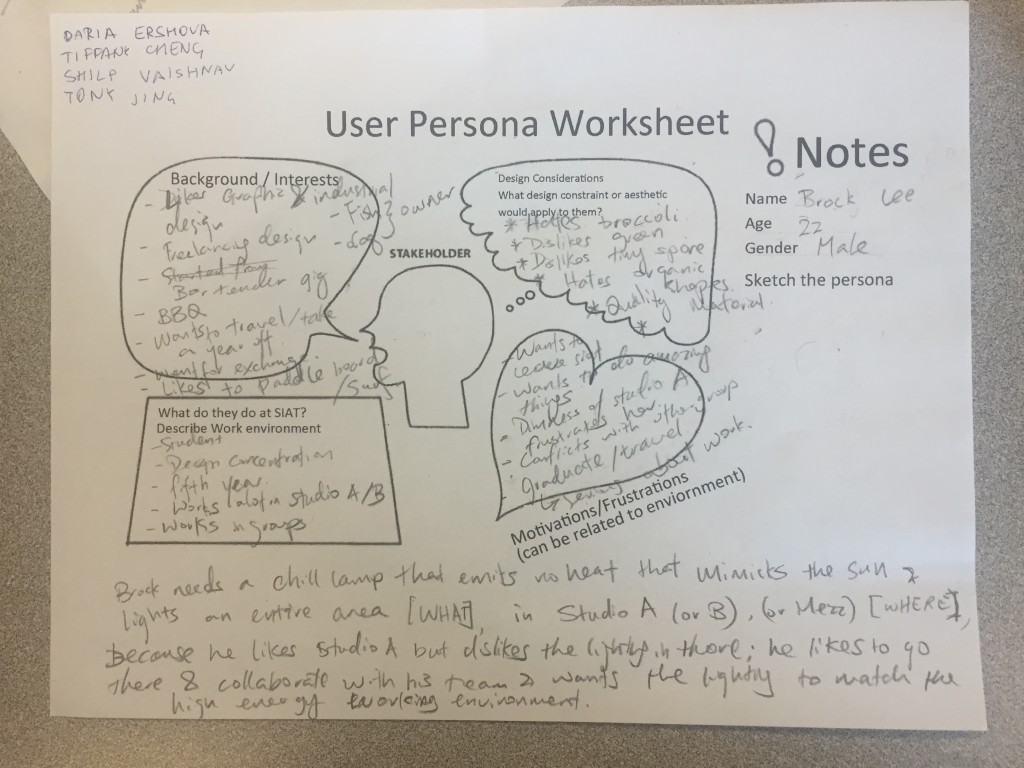 DARIA ERSHOVA
TIFFANY CHENG
SHILP VAISHNAV
TONY JING
User Persona Worksheet
! Notes
Name Brock Lee
Age 22
Gender Male
Sketch the persona
Background / Interests
- Likes Graphic & industrial
design
- Fish } owner
- dog
- Freelancing design
- Started
Bartender gig
- BBQ
- Wants to travel / take
a year off
- Went for exchange
- Likes to Paddle board
/ Surf
STAKEHOLDER
Design Considerations
What design constraint or aesthetic
would apply to them?
* Hates broccoli
* Dislikes green
* Dislikes tiny space
* Hates organic
shapes
* Quality Material
*
What do they do at SIAT?
Describe Work environment
- Student
- Design Concentration
- fifth year
- Works alot in studio A/B
- Works in groups
- Wants to
leave siat
- Wants to do amazing
things
- Dimness of studio A
frustrates
- Conflicts with group
- graduate / travel
↳ about work.
Motivations/Frustrations
(can be related to enviornment)
Brock needs a chill lamp that emits no heat that mimicks the sun &
lights an entire area [WHAT], in Studio A (or B), (or Mezz) [WHERE],
because he likes studio A but dislikes the lighting in there; he likes to go
there & collaborate with his team & wants the lighting to match the
high energy working environment.